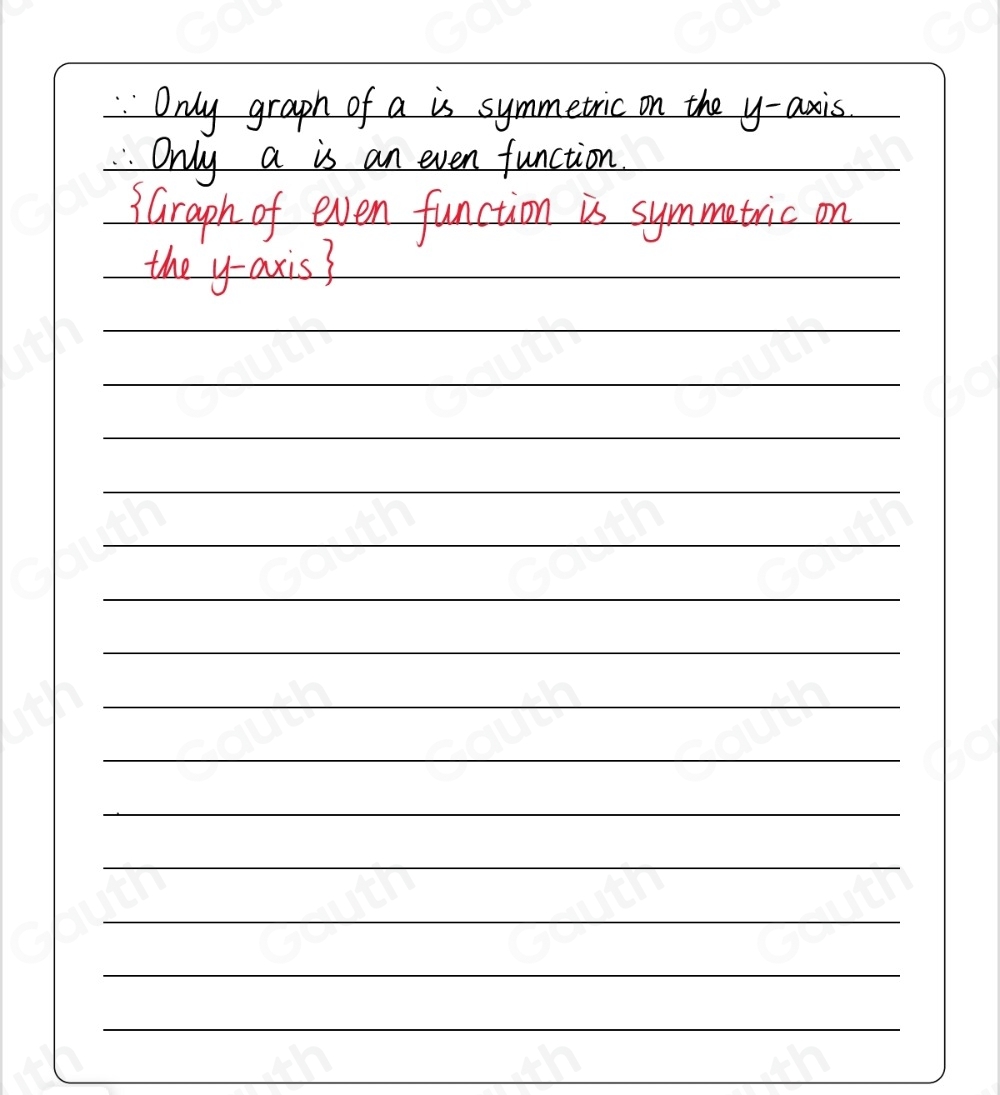 ∵ Only graph of a is symmetric on the y-axis.
∴ Only a is an even function.
{Graph of even function is symmetric on
the y-axis}